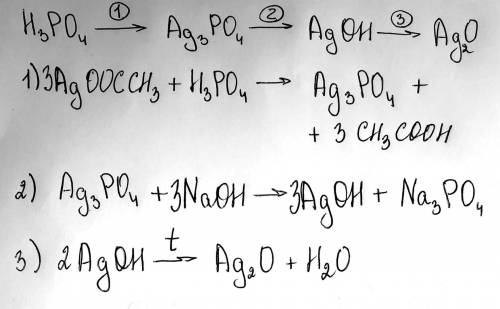 H₃PO₄ —①→ Ag₃PO₄ —②→ AgOH —③→ Ag₂O
1) 3AgOOCCH₃ + H₃PO₄ → Ag₃PO₄ +
+ 3 CH₃COOH
2) Ag₃PO₄ + 3NaOH → 3AgOH + Na₃PO₄
3) 2AgOH —t→ Ag₂O + H₂O